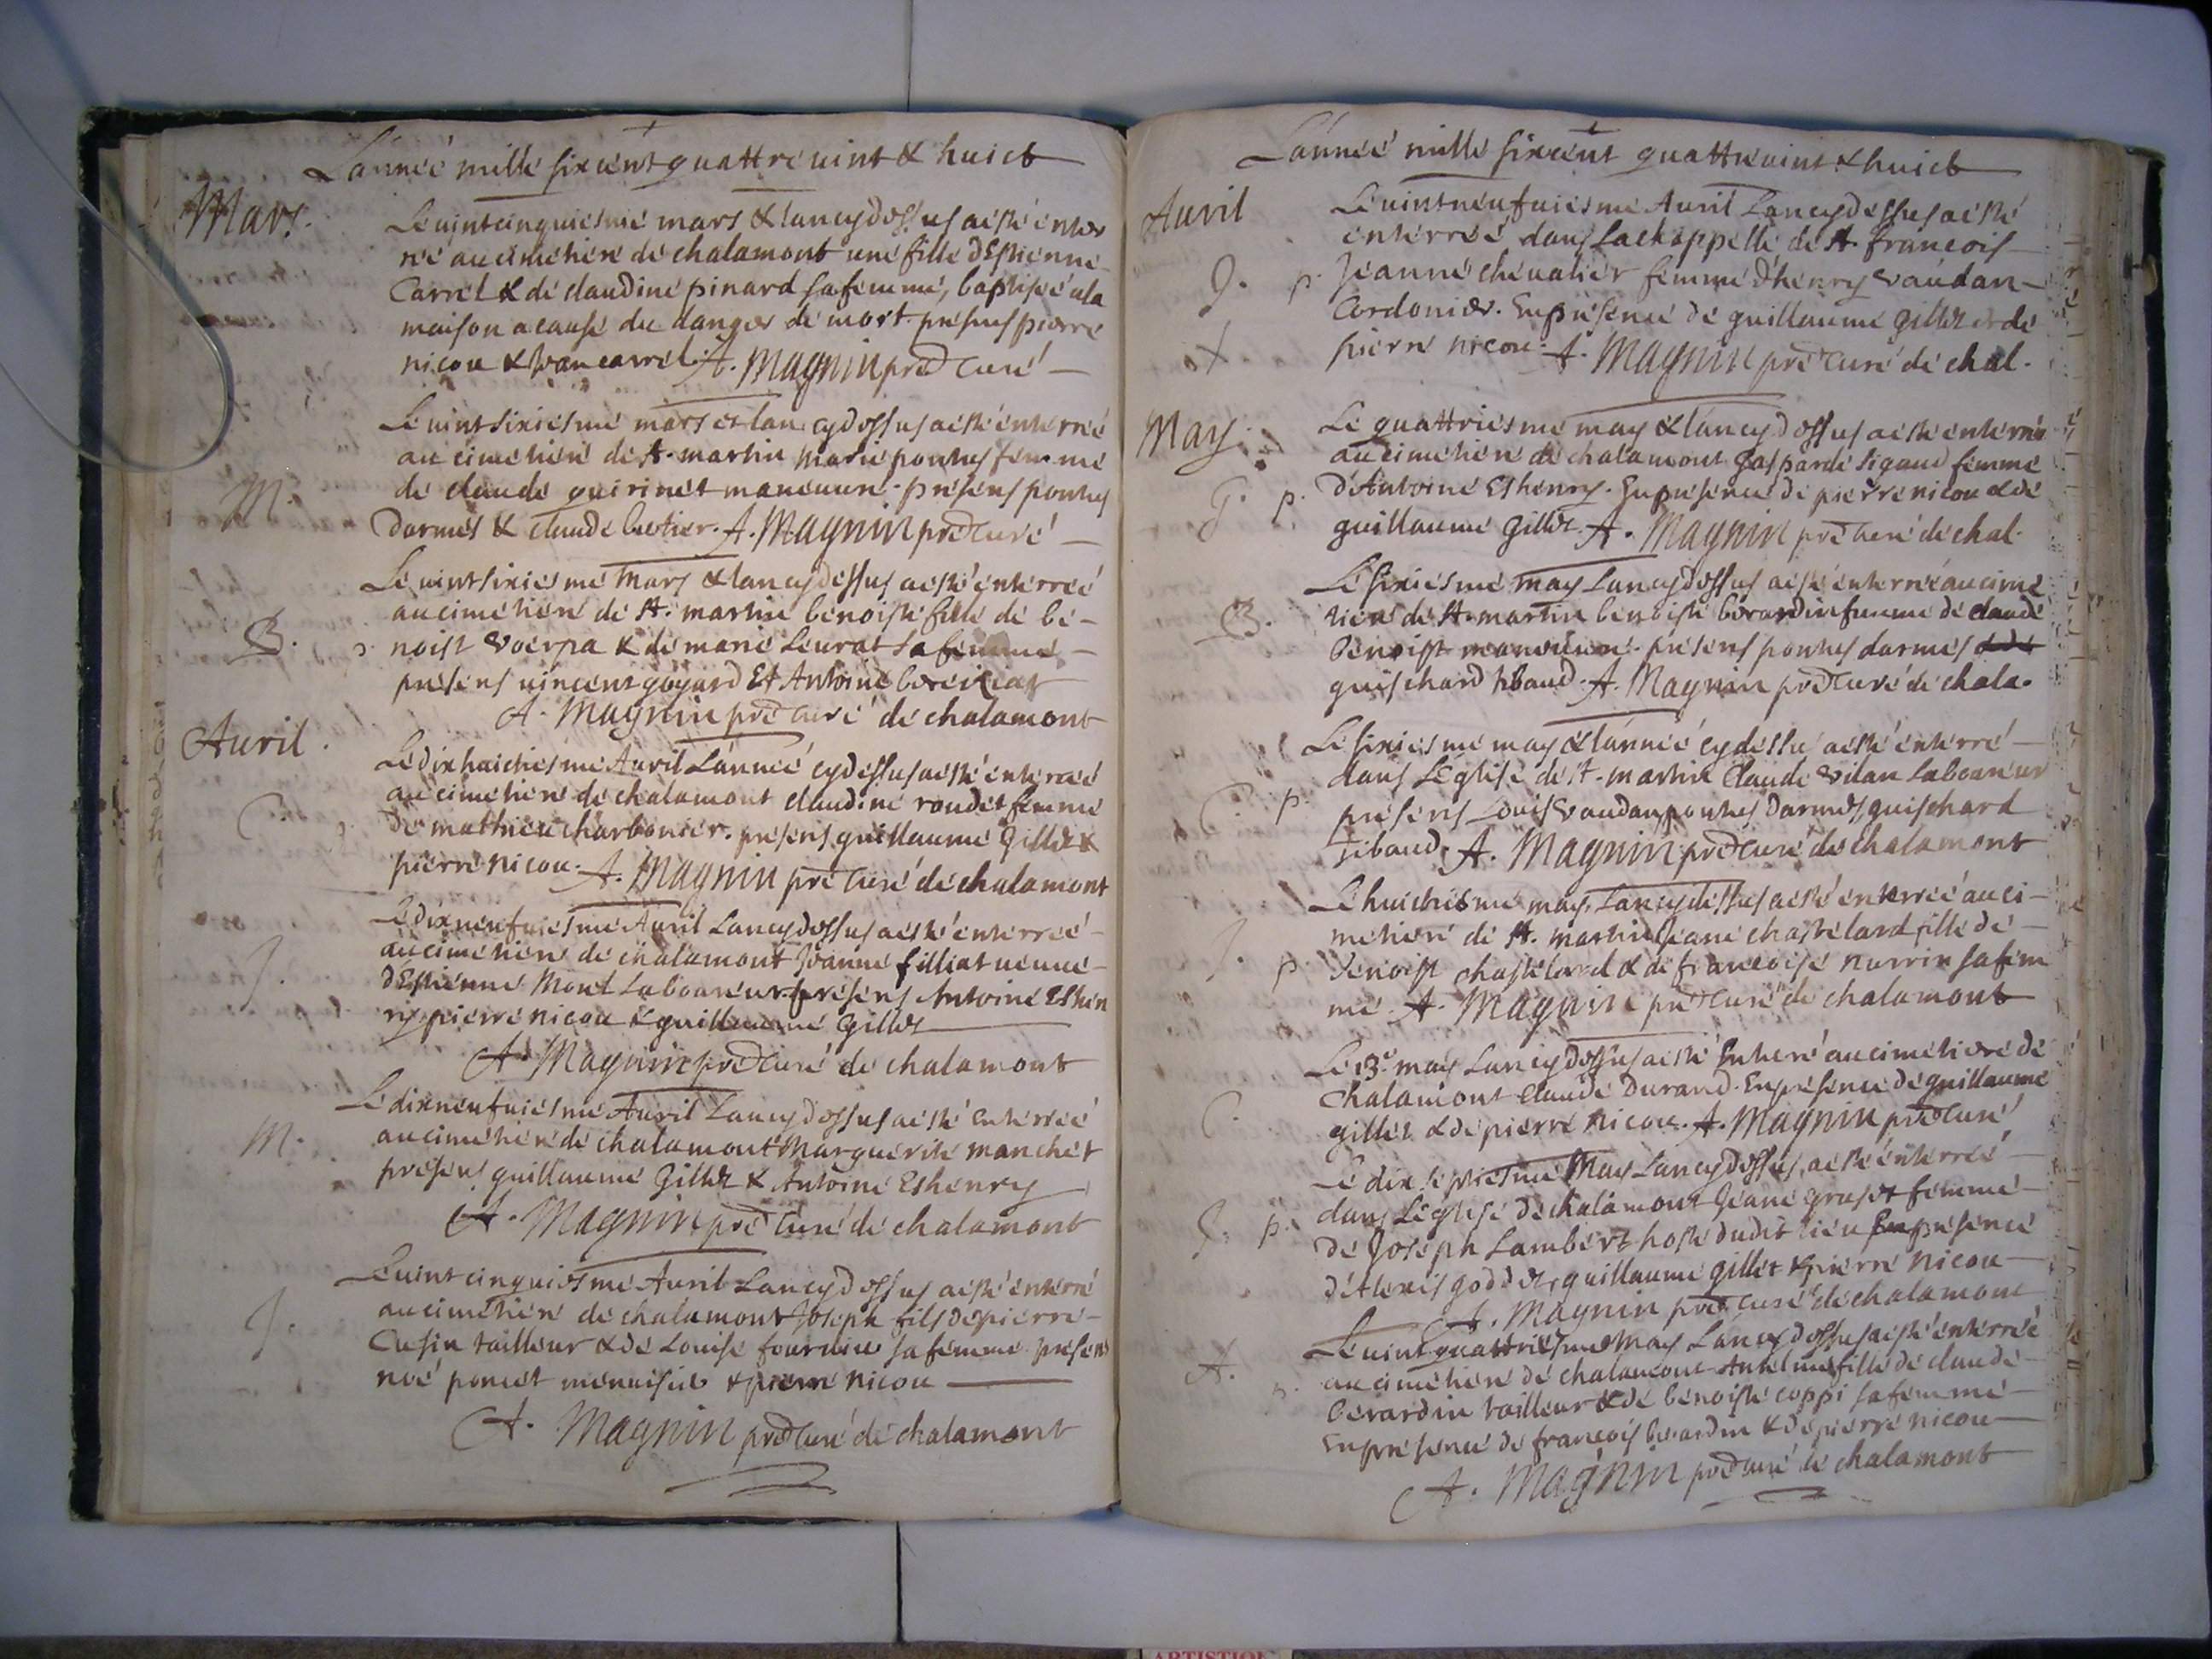 L'anneé mille sixcent quattreuint & huict
Mars.
Le uintcinquiesme mars & lancydessus aesté enter
reé aucimetiere de chalamont une fille d'Estienne
Carrel & de claudine pinard safemme, baptiseé ala
maison acause du danger de mort. presens pierre
nicou & Jean carrel. A. Magnin pré curé
Le uintsixiesme mars et lan cydessus aesté enterreé
au cimetiere de St. martin marie ponthus femme
M.
de claude guirinet maneuure. presens ponthus
darmes & claude A. Magnin pré curé
Le uintsixiesme Mars & lancydessus aesté enterreé
aucimetiere de St. martin benoiste fille de be-
B.
noist Voerpa & de marie Leurat safemme
presens uincent goyard Et Antoine
A. Magnin pré curé de chalamont
Auril.
Le dixhuictiesme Auril L'anneé cydessus aesté enterreé
aucimetiere de chalamont claudine roudet femme
C.
de mathieu charbonier. presens guillaume Gillet &
pierre nicou. A. Magnin pré curé de chalamont
Le dixneufuiesme Auril Lancydessus aesté enterreé
aucimetiere de chalamont Jeanne filliat ueuue
J.
d'Estienne Mont Laboureur. presens Antoine Eshen
ry pierre nicou & guillaume Gillet
A. Magnin pré curé de chalamont
Le dixneufuiesme Auril Lancydessus aesté enterreé
M.
aucimetiere de chalamont Marguerite manchet
presens guillaume Gillet & Antoine Eshenry
A. Magnin pré curé de chalamont
Le uintcinquiesme Auril Lancydessus aesté enterré
aucimetiere de chalamont Joseph fils de pierre
J.
Cusin tailleur & de Louise fournier safemme presens
noé poncet menuisier & pierre nicou
A. Magnin pré curé de chalamont
L'anneé mille sixcent quattreuint & huict
Auril
Le uintneufuiesme Auril Lancydessus aesté
enterreé dans Lachappelle de St. francois
J. p.
Jeanne cheualier femme d'henry Vaudan
Cordonier. Enpresence de guillaume Gillet et de
pierre nicou. A. Magnin pré curé de chal.
May.
Le quattriesme may & lancydessus aesté enterreé
aucimetiere de chalamont Gasparde Sigaud femme
G. p.
d'Antoine Eshenry. Enpresence de pierre nicou & de
guillaume Gillet. A. Magnin pré curé de chal.
Le sixiesme may Lancydessus aesté enterreé aucime
B.
tiere de St. martin benoiste berardin femme de claude
benoist maneuure. presens ponthus darmes
guischard tibaud. A. Magnin pré curé de chala.
Le sixiesme may & l'anneé cydessu aesté enterré
dans L'Eglise de St. martin Claude Vilan Laboureur
C. p.
presens Louis Vaudan, ponthus Darmes, guischard
tibaud. A. Magnin pré curé de chalamont
Le huictiesme may, Lancydessus aesté enterreé auci-
metiere de St. martin Jeane chastelard fille de
J. p.
benoist chastelard & de francoise nurrin safem
me. A. Magnin pré curé de chalamont
Le 13e. may Lancydessus aesté Enterré aucimetiere de
Chalamont Claude Durand. Enpresence de guillaume
C.
gillet & de pierre nicou. A. Magnin pré curé
Le dix septiesme May Lancydessus, aesté enterreé
dans L'eglise de chalamont Jeane gruset femme
J. p.
de Joseph Lambert hoste dudit lieu Enpresence
d'Alexis goddet, guillaume gillet & pierre nicou
A. Magnin pré curé de chalamont
Le uintquattriesme May Lancydessus aesté enterreé
A.
au cimetiere de chalamont Antelme fille de claude
berardin tailleur & de benoiste coppi safemme
Enpresence de francois berardin & de pierre nicou
A. Magnin pré curé de chalamont